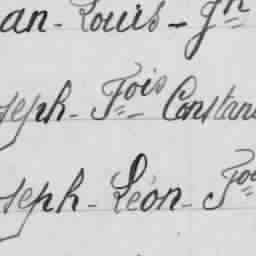 an - Louis - Jh
seph - Fois Constan
seph - Léon - Fo